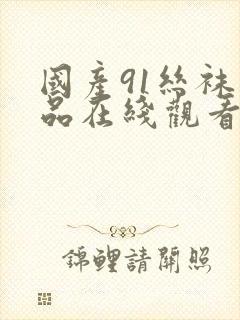 國產91絲袜
品在綫觀看
錦鯉請開照